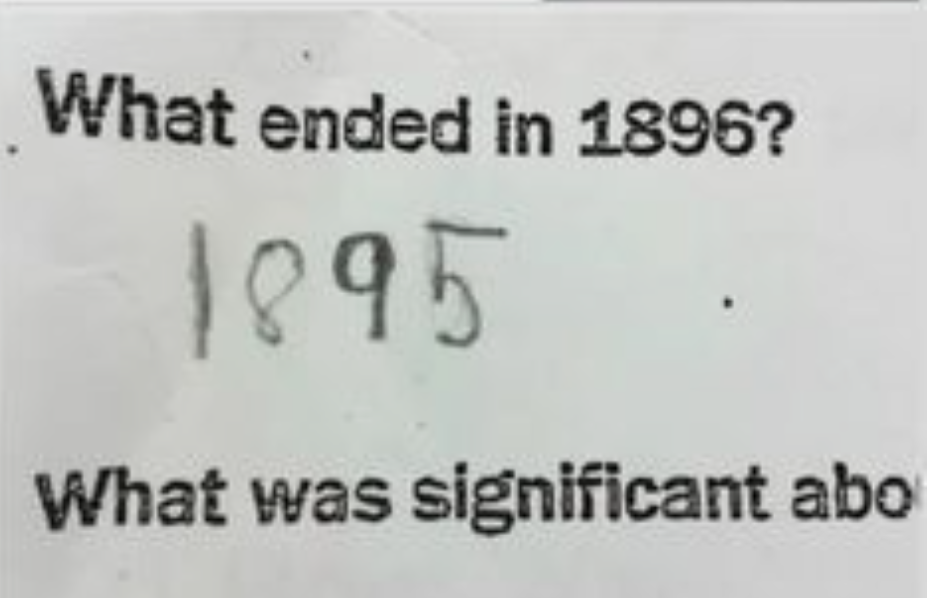 What ended in 1896?
1895
What was significant abo